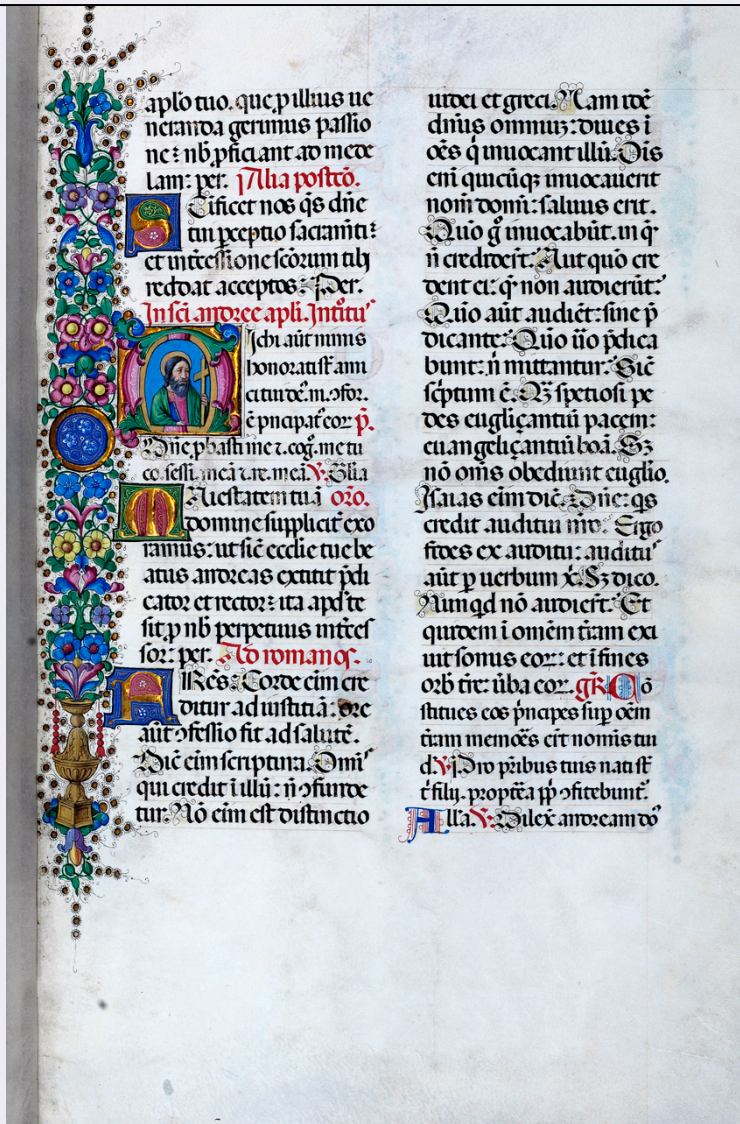 aplo tuo. que p illius ue
neranda gerimus passio
ne: nb pficiant ad mede
lam: per. Alia postcō.
Sctificet nos qs dn̄e
tui pceptio sacramti:
et int̄cessione scōrum tibi
reddat acceptos. Per.
In sc̄i andree apli. Introitu'
Michi aūt nimis
honorati s̄t ami
ci tui de'. nī. ꝯfor.
ē pncipat' eor p̄.
Dn̄e pbasti me ⁊ cog. me tu
co. sessi. meā ⁊ re. meā. V. Glia
Maiestatem tuā orō.
domine suppliciť exo
ramus: ut sic̄ ecclie tue be
atus andreas extitit p̄di
cator et rector: ita apd' te
sit p nb perpetuus int̄ces
sor: per. Ad romanos.
FRēs: Corde eim cre
ditur ad iustitiā: ore
aūt ꝯfessio fit ad salutē.
Dic̄ eim scriptura. Omis'
qui credit ī illū: n̄ ꝯfunde
tur. Nō eim est distinctio
iudei et greci. Nam idē
dn̄us omniuz: diues ī
oēs q̄ inuocant illū. Ois
eni quicūq inuocauerit
nom̄ domī: saluus erit.
Quō g̊ inuocabūt. in q̄
n̄ crediderūt. Aut quō cre
dent ei: q̄ non audierūt:
Quō aūt audiēt: sine p̄
dicante: Quō ūo p̄dica
bunt: n̄ mittantur. Sic̄
sc̄ptum ē. Qz spetiosi pe
des eugliçantiū pacem:
euangeliçantiū boā. Sz
nō om̄s obediunt euglio.
Isaias eim dic̄. Dn̄e: qs
credit auditui nrō. Ergo
fides ex auditu: auditu'
aūt p uerbum x̄. Sz dico.
Nunqd nō audier̄t. Et
quidem ī omēm t̄ram exi
uit sonus eor: et ī fines
orb t̄re: ūba eor. gr̄. Cō
stitues eos p̄ncipes sup oēm
t̄ram memōes er̄t nominis tui
d. V. Pro p̄ribus tuis nati st̄
t̄ filij. propt̄ea pp̄ ꝯfitebunt̄.
Alla. V. Dilex̄ andream dō'